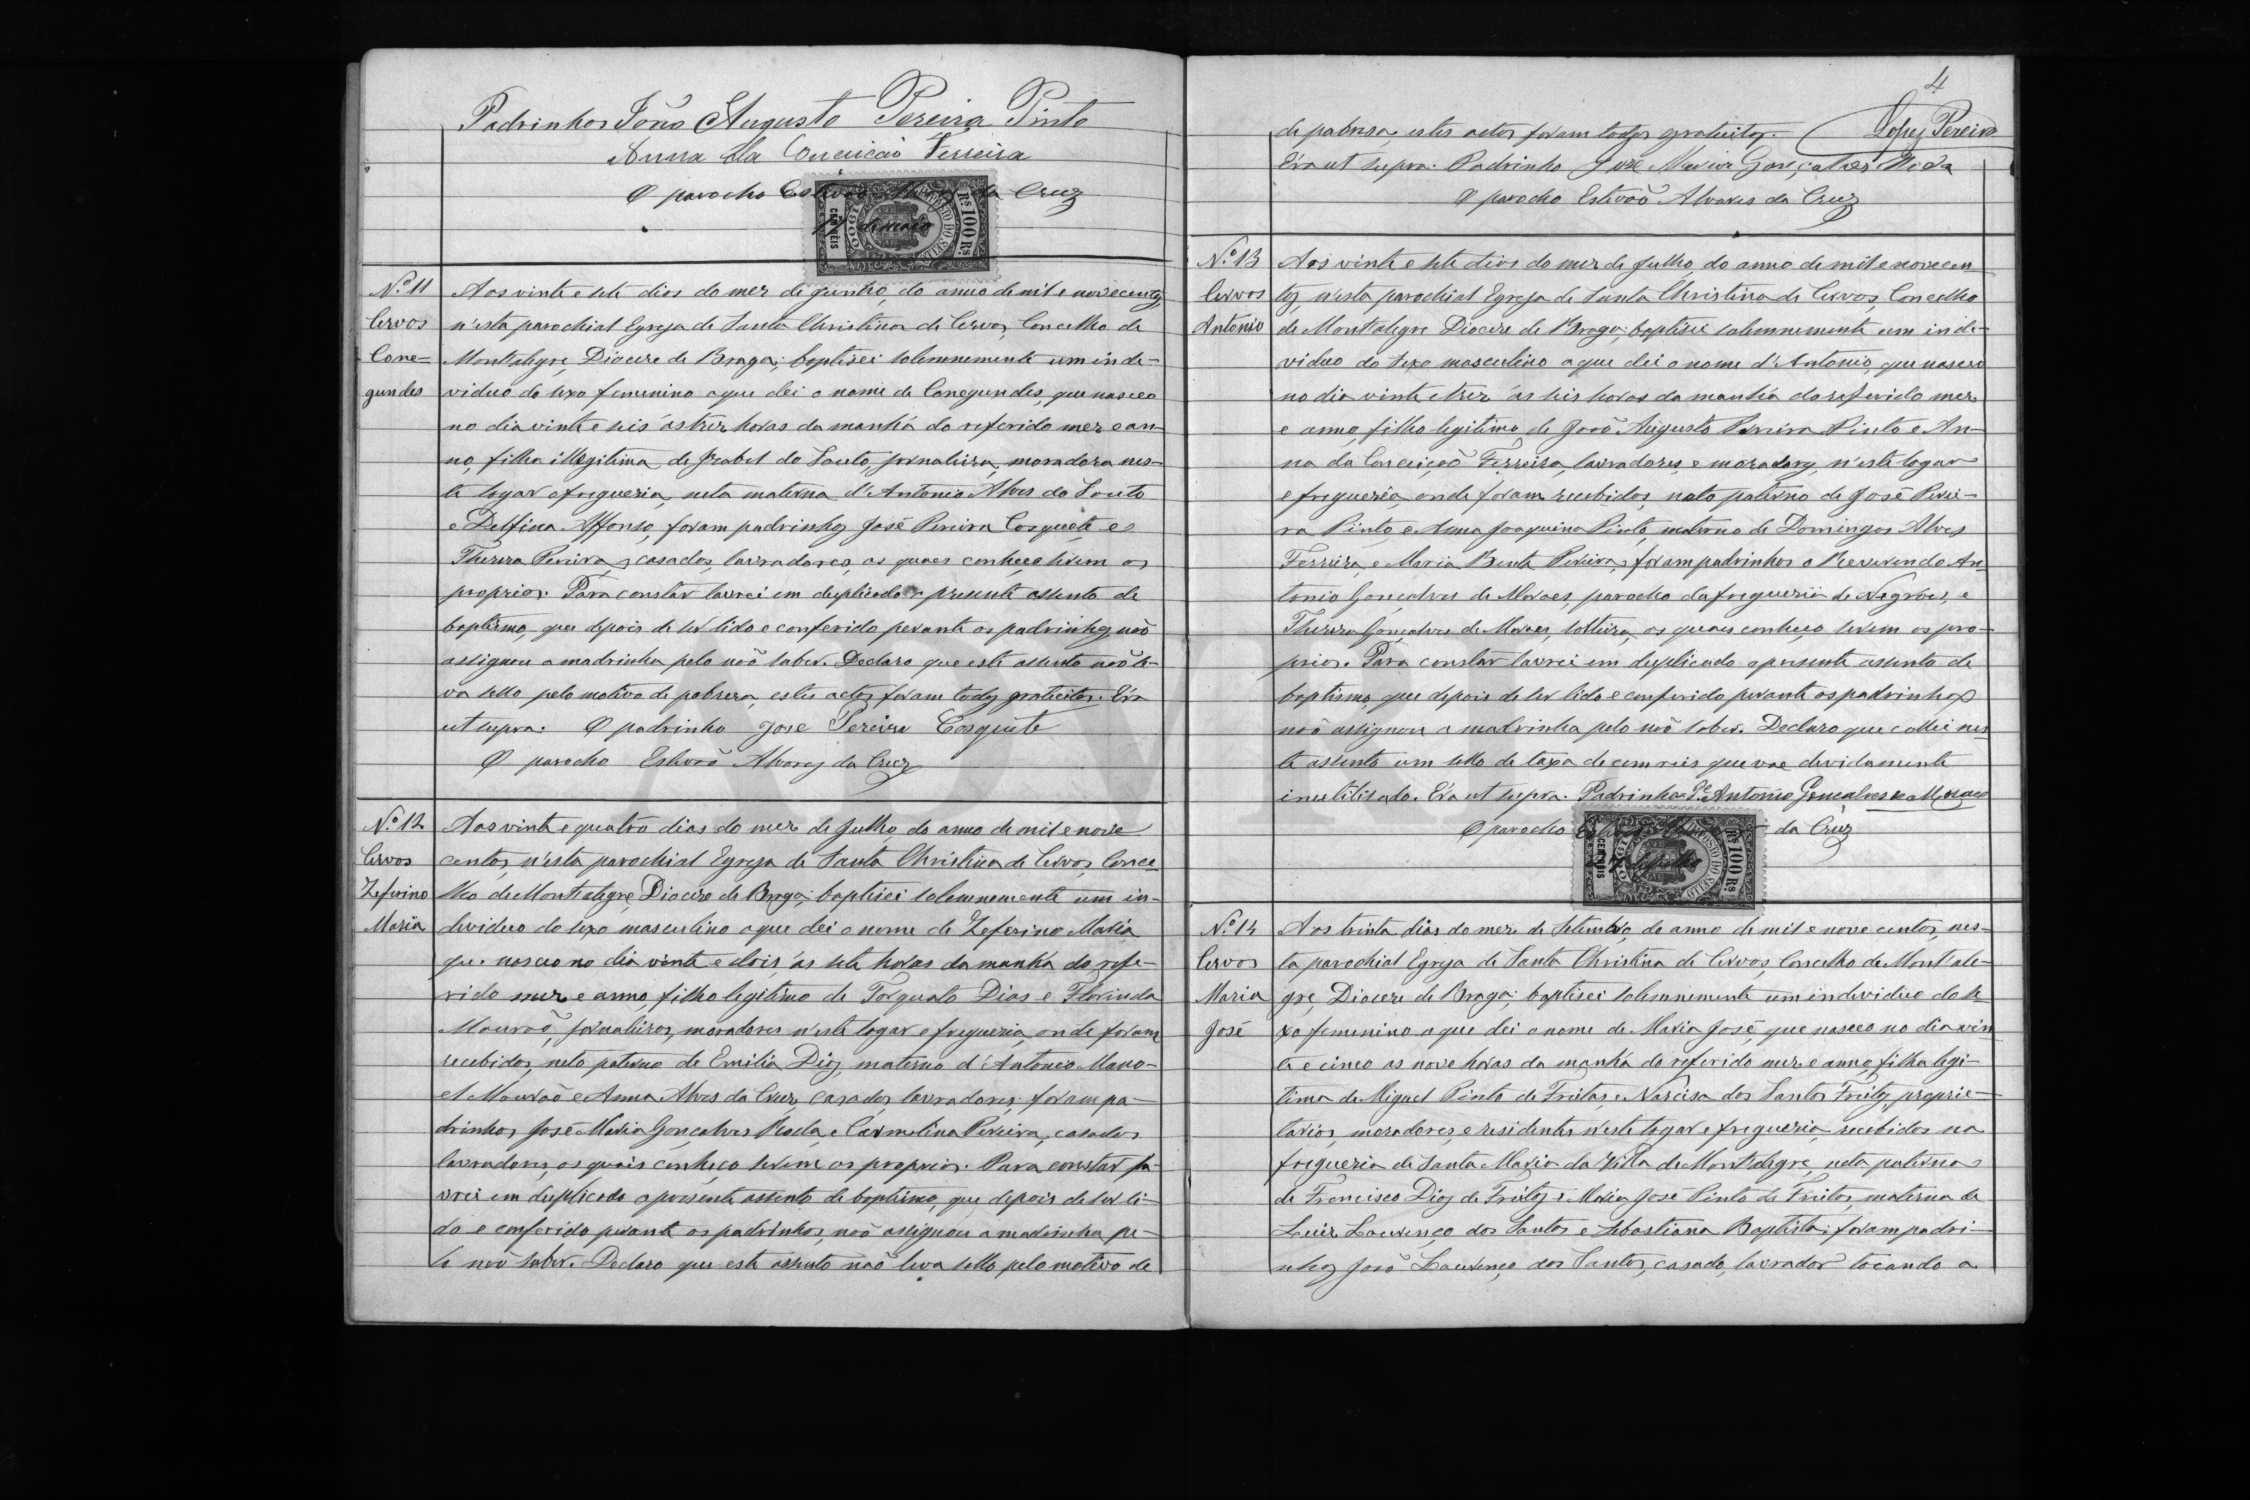 Padrinhos João Augusto Pereira Pinto
Anna da Conceição Ferreira
O parocho Estevão Alvares da Cruz
Nº 11
Cervos
Cone-
gundes
Aos vinte e sete dias do mez de junho, do anno de mil e novecentos,
n'esta parochial Egreja de Santa Christina de Cervos, Concelho de
Montalegre, Diocese de Braga; baptisei solemnemente um inde-
viduo do sexo femenino a que dei o nome de Conegundes, que nasceo
no dia vinte e seis ás trez horas da manhã do referido mez e an-
no, filha illegitima de Izabel do Souto, jornaleira, moradora nes-
te logar e freguezia, neta materna d'Antonio Alves do Souto
e Delfina Affonso, foram padrinhos José Pereira Cosquete e
Thereza Pereira, casados, lavradores, os quaes conheço serem os
proprios. Para constar lavrei em duplicado o presente assento de
baptismo, que depois de ser lido e conferido perante os padrinhos, não
assignou a madrinha pelo não saber. Declaro que este assento não le-
va sello pelo motivo de pobreza, estes actos foram todos gratuitos. Era
ut supra. O padrinho José Pereira Cosquete
O parocho Estevão Alvares da Cruz
Nº 12
Cervos
Zeferino
Maria
Aos vinte e quatro dias do mez de Julho, do anno de mil e nove
centos, n'esta parochial Egreja de Santa Christina de Cervos, Conce-
lho de Montalegre, Diocese de Braga; baptisei solemnemente um in-
deviduo do sexo masculino a que dei o nome de Zeferino Maria
que nasceo no dia vinte e dois ás sete horas da manhã do refe-
rido mez e anno, filho legitimo de Torquato Dias e Florinda
Mourão, jornaleiros, moradores n'este logar e freguezia, onde foram
recebidos, neto paterno de Emilia Dias, materno d'Antonio Mano-
el Mourão e Anna Alves da Cruz, casados, lavradores; foram pa-
drinhos José Maria Gonçalves Roda e Carmelina Pereira, casados
lavradores, os quais conheço serem os proprios. Para constar la-
vrei em duplicado o presente assento de baptismo, que depois de ser li-
do e conferido perante os padrinhos, não assignou a madrinha pe-
lo não saber. Declaro que este assento não leva sello pelo motivo de
4
Lopes Pereira
de pobreza, estes actos foram todos gratuitos.
Era ut supra. Padrinho José Maria Gonçalves Roda
O parocho Estevão Alvares da Cruz
Nº 13
Cervos
Antonio
Aos vinte e sete dias do mez de Julho, do anno de mil e novecen-
tos, n'esta parochial Egreja de Santa Christina de Cervos, Concelho
de Montalegre Diocese de Braga; baptisei solemnemente um inde-
viduo do sexo masculino a que dei o nome d'Antonio, que nasceo
no dia vinte e trez ás seis horas da manhã do referido mez
e anno, filho legitimo de João Augusto Pereira Pinto e An-
na da Conceição Ferreira, lavradores, e moradores, n'este logar
e freguezia, onde foram recebidos, neto paterno de José Perei-
ra Pinto e Anna Joaquina Pinto, materno de Domingos Alves
Ferreira, e Maria Benta Pereira, foram padrinhos o Reverendo An-
tonio Gonçalves de Moraes, parocho da freguezia de Negrões, e
Thereza Gonçalves de Moraes, solteira, os quaes conheço serem os pro-
prios. Para constar lavrei em duplicado o presente assento de
baptismo, que depois de ser lido e conferido perante os padrinhos
não assignou a madrinha pelo não saber. Declaro que collei nes-
te assento um sello de taxa de cem reis que vae devidamente
inutilisado. Era ut supra. Padrinho Pe. Antonio Gonçalves de Moraes
O parocho da Cruz
Nº 14
Cervos
Maria
José
Aos trinta dias do mez de Setembro, do anno de mil e nove centos, nes-
ta parochial Egreja de Santa Christina de Cervos, Concelho de Montale-
gre, Diocese de Braga; baptisei solemnemente um individuo do se-
xo femenino a que dei o nome de Maria José, que nasceo no dia vin
te e cinco as nove horas da manhã do referido mez e anno, filha legi-
tima de Miguel Pinto de Freitas, e Narcisa dos Santos Freitas, proprie-
tarios, moradores, e residentes n'este logar e freguezia, recebidos na
freguezia de Santa Maria da Villa de Montalegre, neta paterna
de Francisco Dias de Freitas e Maria José Pinto de Freitas, materna de
Luiz Lourenço dos Santos e Sebastiana Baptista; foram padri-
nhos João Lourenço dos Santos, casado, lavrador tocando a